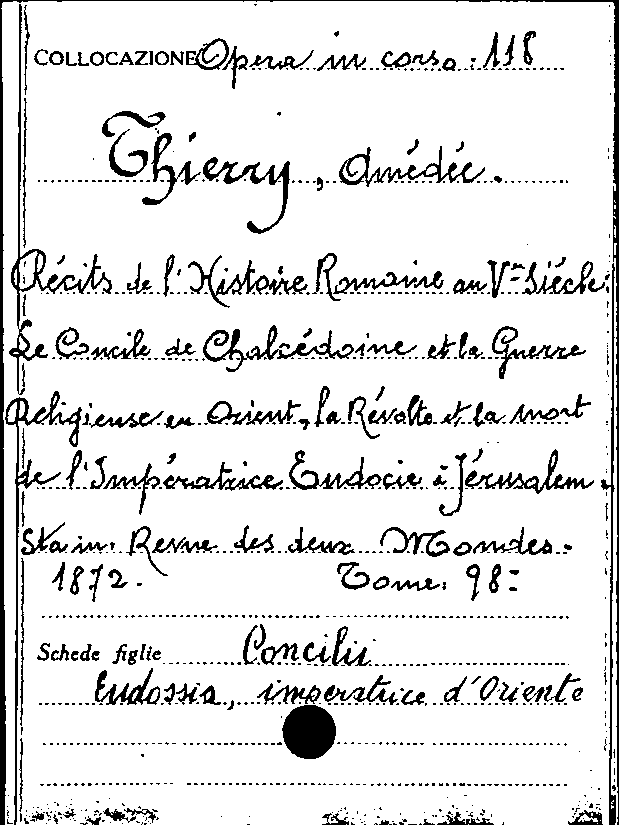 COLLOCAZIONE Opera in corso. 118
Thierry, Amédée.
Récits de l'Histoire Romaine au V.e Siécle:
Le Concile de Chalcédoine et la Guerre
Religieuse en Orient, la Révolte et la mort
de l'Impératrice Eudocie à Jérusalem.
Sta in: Revue des deux Mondes.
1872. Tome. 98:
Schede figlie Concilii
Eudossia, imperatrice d'Oriente